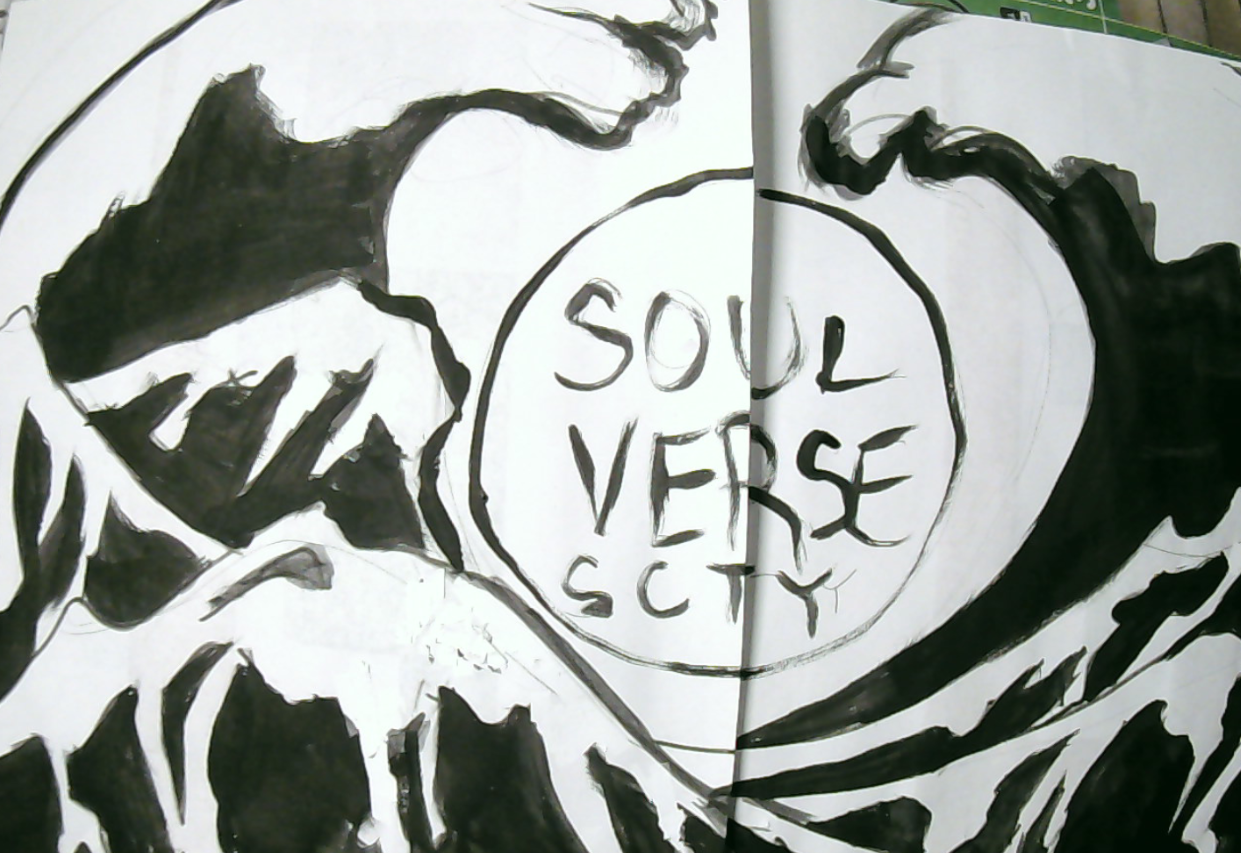 SOUL
VERSE
SCTY